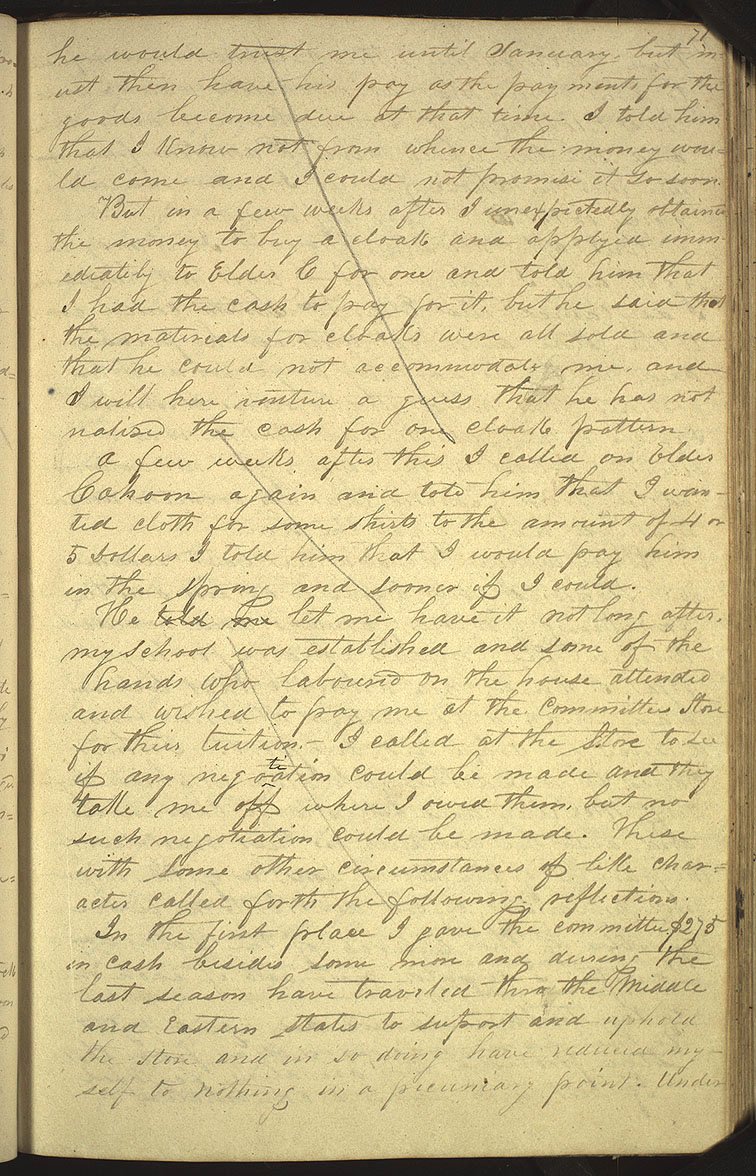 71
he would trust me until January but m-
ust then have his pay as the payments for the
goods become due at that time. I told him
that I know not from whence the money wou-
ld come and I could not promise it so soon.
But in a few weeks after I unexpectedly obtained
the money to buy a cloak and applyed imm-
ediately to Elder C for one and told him that
I had the cash to pay for it, but he said that
the materials for cloaks were all sold and
that he could not accommodate me, and
I will here venture a guess that he has not
realized the cash for one cloak pattern.
A few weeks after this I called on Elder
Cahoon again and told him that I wan-
ted cloth for some shirts to the amount of 4 or
5 Dollars I told him that I would pay him
in the spring and sooner if I could.
He told me let me have it not long after,
my school was established and some of the
hands who laboured on the house attended
and wished to pay me at the Committees Store
for their tuition.- I called at the Store to see
if any negotiation could be made and they
take me off where I owed them, but no
such negotiation could be made. These
with some other circumstances of like char=
acter called forth the following reflections.
In the first place I gave the committee $275
in cash besides some more and during the
last season have traveled thro the Middle
and Eastern states to suport and uphold
the store and in so doing have reduced my-
self to nothing in a pecuniary point. Under